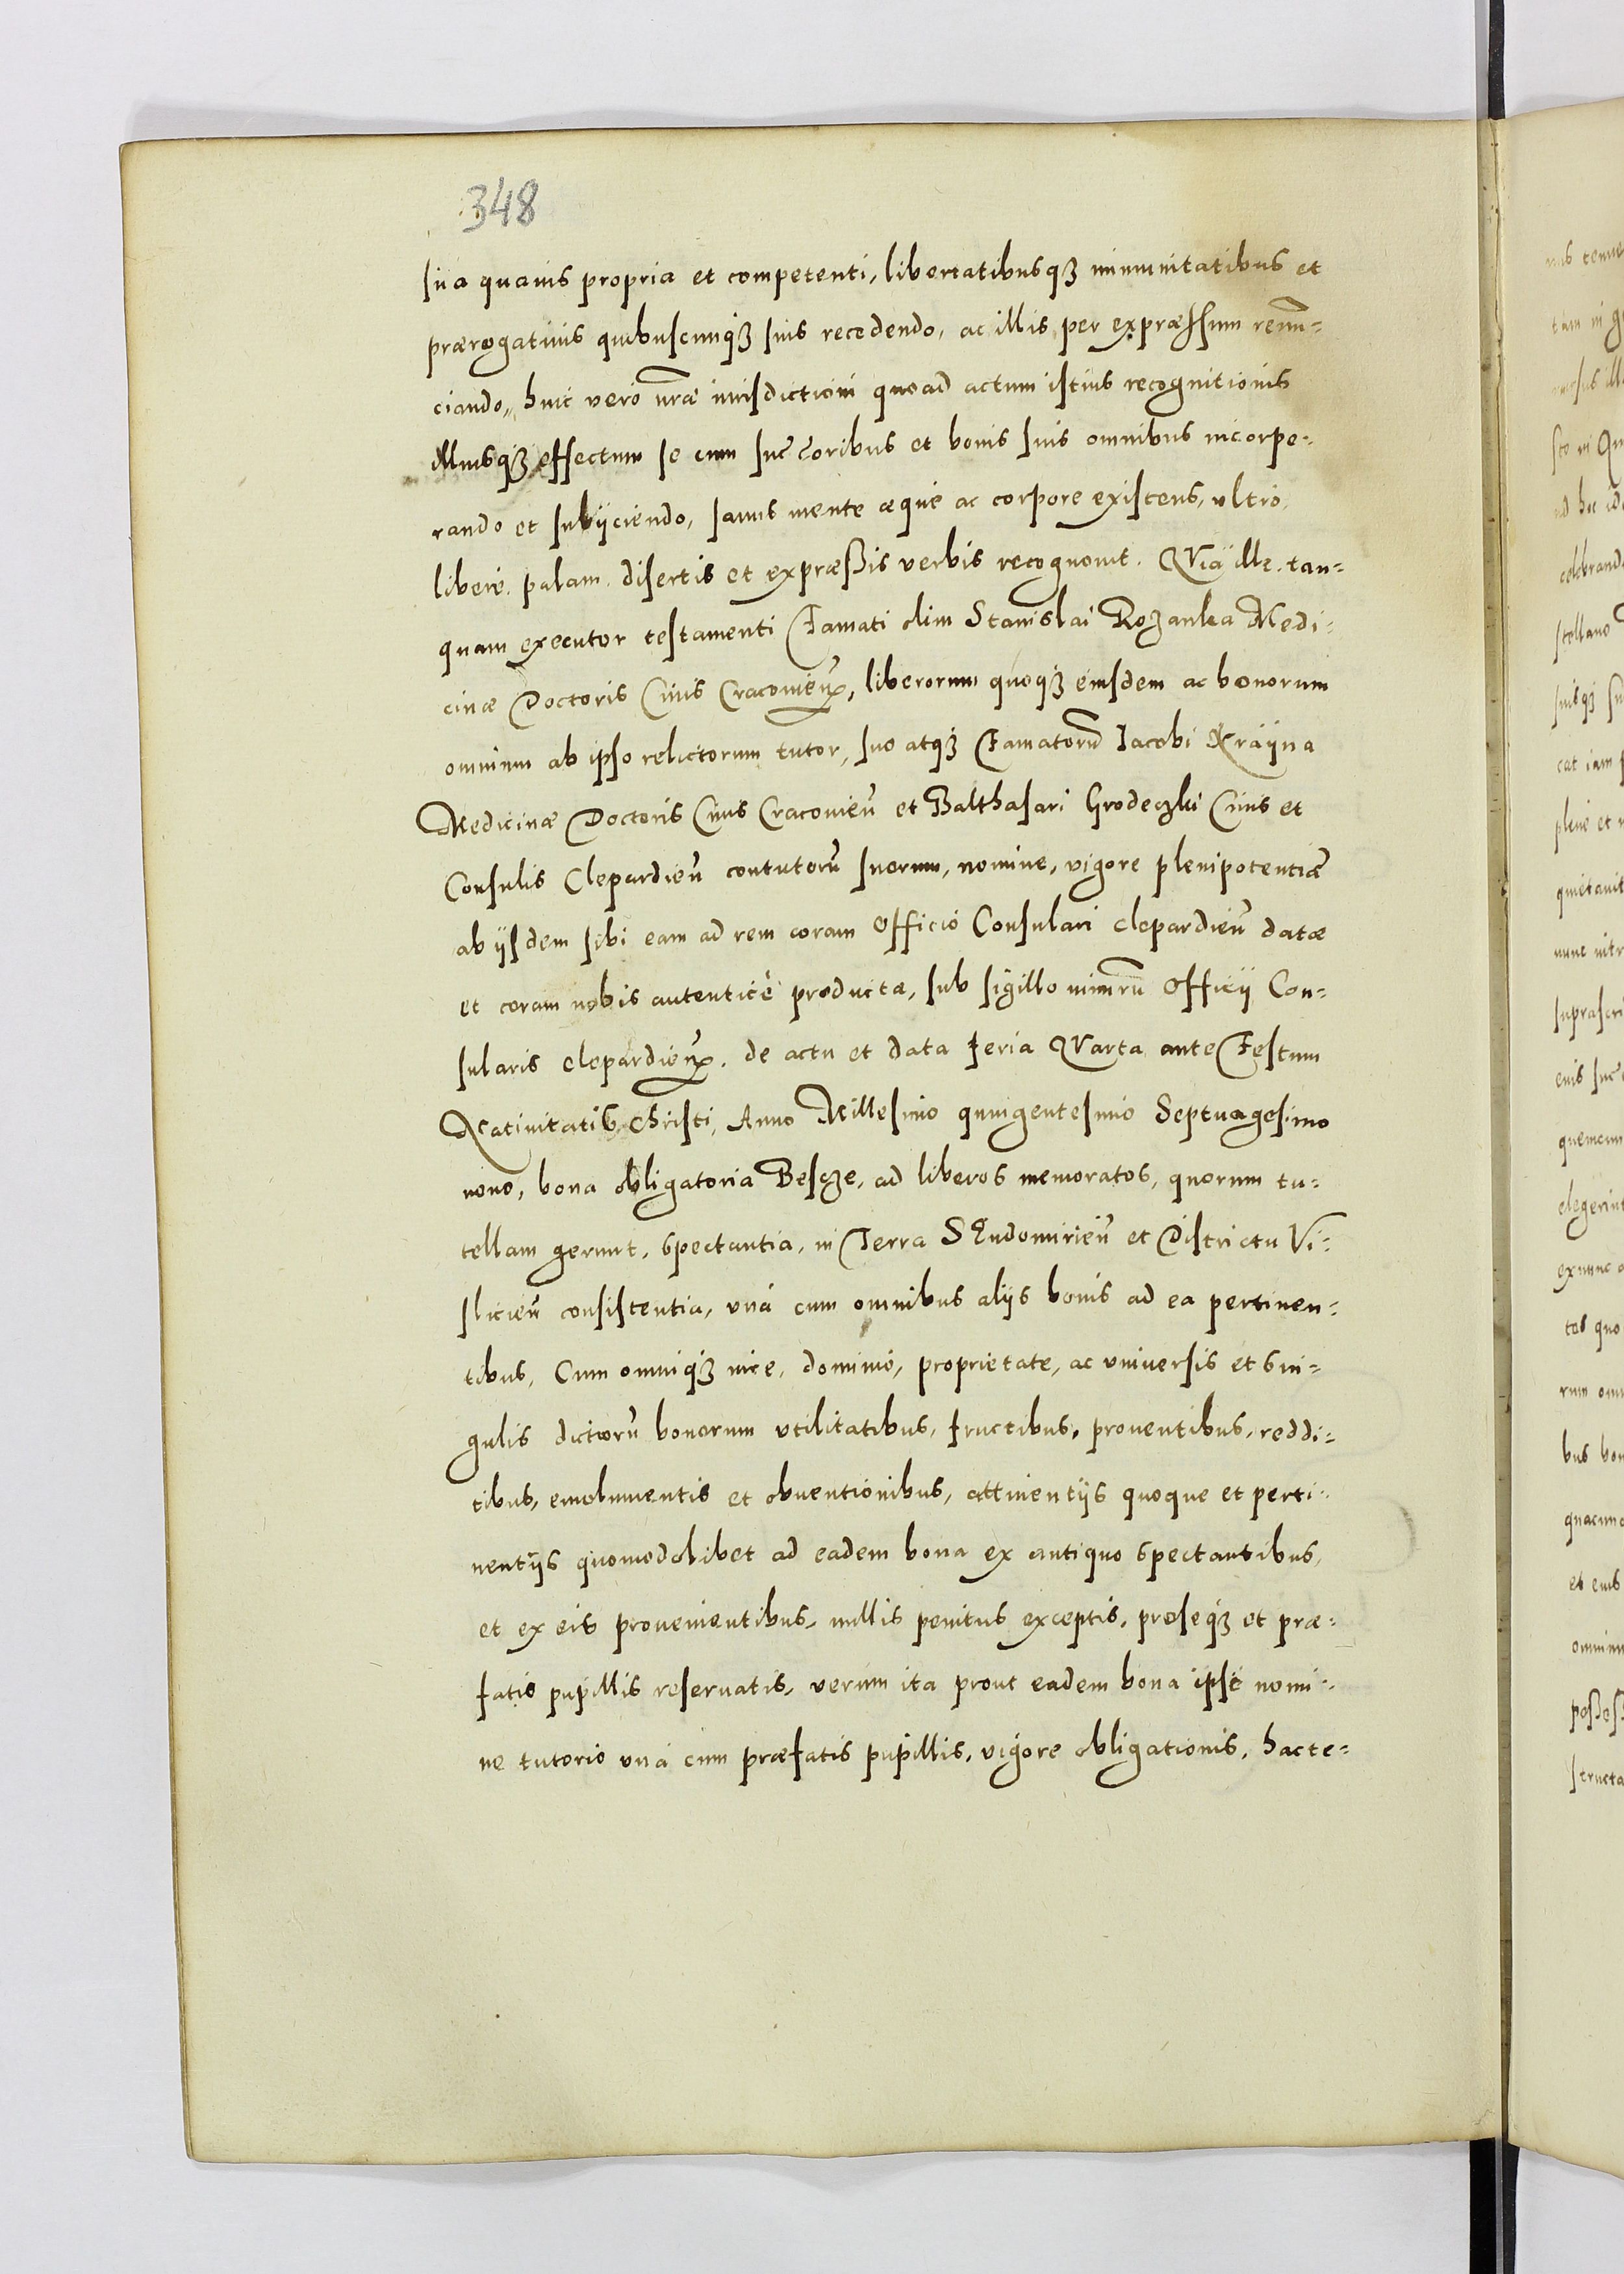 348
sua quavis propria et competenti, libertatibusqȝ immunitatibus et
prærogativis quibuscunqȝ suis recedendo, ac illis per expræssum renū=
ciando, huic verò nr̄æ iurisdictioni quoad actum istius recognitionis
illiusqȝ effectum se cum succ̄oribus et bonis suis omnibus incorpo=
rando et subijciendo, sanus mente æquè ac corpore existens, vltrò,
liberè, palam, disertis et expræßis verbis recognovit. Quia ille, tan=
quam executor testamenti Famati olim Stanislai Rozanka Medi=
cinæ Doctoris Civis Cracovien̄, liberorum quoqȝ eiusdem ac bonorum
omnium ab ipso relictorum tutor, suo atqȝ Famatorū Iacobi Krayna
Medicinæ Doctoris Civis Cracovien̄ et Balthasari Grodeczki Civis et
Consulis Clepardien̄ contutorū suorum, nomine, vigore plenipotentiæ
ab ijsdem sibi eam ad rem coram Officio Consulari clepardien̄ datæ
et coram nobis autenticè productæ, sub sigillo nimirū Officij Con=
sularis clepardien̄. de actu et data feria Quarta ante Festum
Nativitatis Christi, Anno Millesimo quingentesimo Septuagesimo
nono, bona obligatoria Bescze, ad liberos memoratos, quorum tu=
tellam gerunt, spectantia, in Terra SEndomirien̄ et Districtu Vi=
slicien̄ consistentia, vnà cum omnibus alijs bonis ad ea pertinen=
tibus, Cum omniqȝ iure, dominio, proprietate, ac vniversis et sin=
gulis dictorū bonorum vtilitatibus, fructibus, proventibus, reddi=
tibus, emolumentis et obventionibus, attinentijs quoque et perti=
nentijs quomodolibet ad eadem bona ex antiquo spectantibus,
et ex eis provenientibus, nullis penitus exceptis, proseqȝ et præ=
fatis pupillis reservatis, verum ita prout eadem bona ipse nomi=
ne tutorio vnà cum præfatis pupillis, vigore obligationis, hacte=